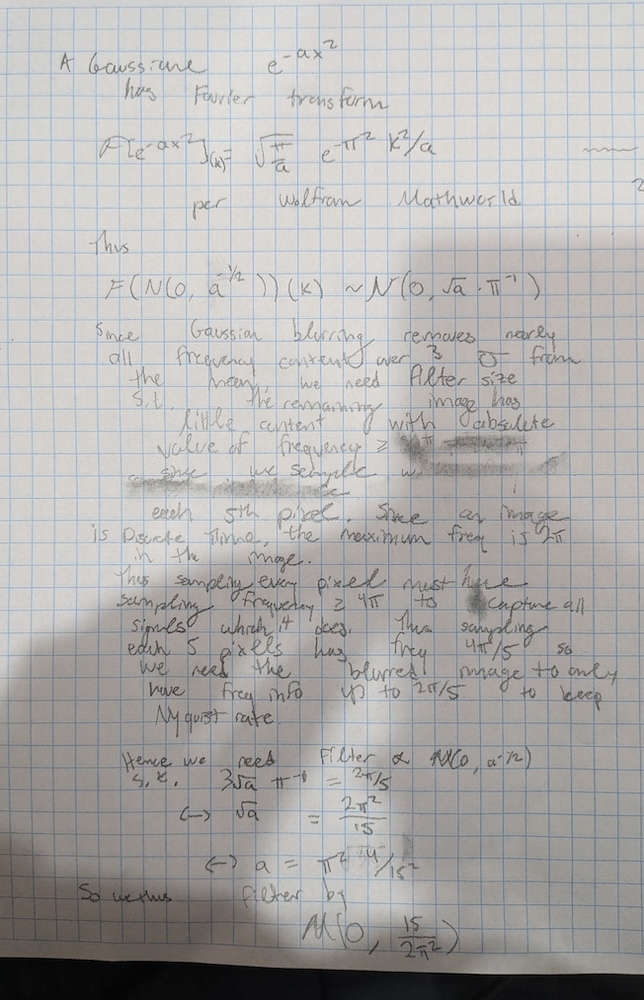 A Gaussiane e^{-ax^2}
has Fourier transform
F[e^{-ax^2}]_{(k)} = √(π/a) e^{-π^2 k^2/a}
per Wolfram Mathworld
Thus
F(N(0, a^{-1/2}))(k) ~ N(0, √a · π^{-1})
Since Gaussian blurring removes nearly
all frequency content over 3 σ from
the mean, we need filter size
s.t. the remaining image has
little content with absolute
value of frequency ≥
since we sample
each 5th pixel. Since an image
is Discrete Time, the maximum freq is 2π
in the image.
Thus sampling every pixel must have
sampling frequency ≥ 4π to capture all
signals which it does. Thus sampling
each 5 pixels has freq 4π/5 so
we need the blurred image to only
have freq info up to 2π/5 to keep
Nyquist rate.
Hence we need Filter ∝ N(0, a^{-1/2})
s.t. 3√a π^{-1} = 2π/5
↔ √a = 2π^2/15
↔ a = π^4 4/15^2
So we thus filter by
N(0, 15/2π^2)